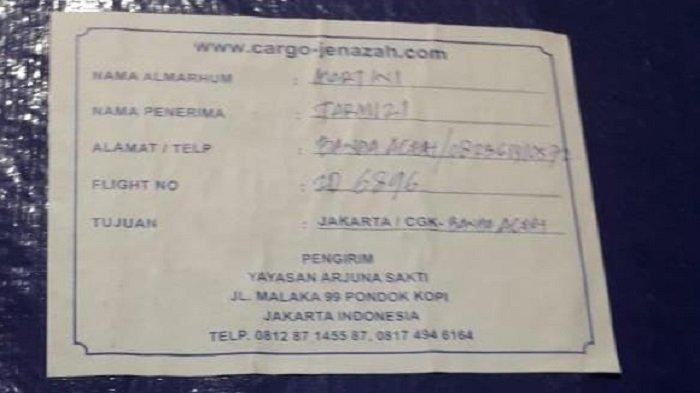 www.cargo-jenazah.com
NAMA ALMARHUM : MARTINI
NAMA PENERIMA : TARMIZI
ALAMAT / TELP : BANDA ACEH/
FLIGHT NO : ID 6896
TUJUAN : JAKARTA / CGK- BANDA ACEH
PENGIRIM
YAYASAN ARJUNA SAKTI
JL. MALAKA 99 PONDOK KOPI
JAKARTA INDONESIA
TELP. 0812 87 1455 87, 0817 494 6164